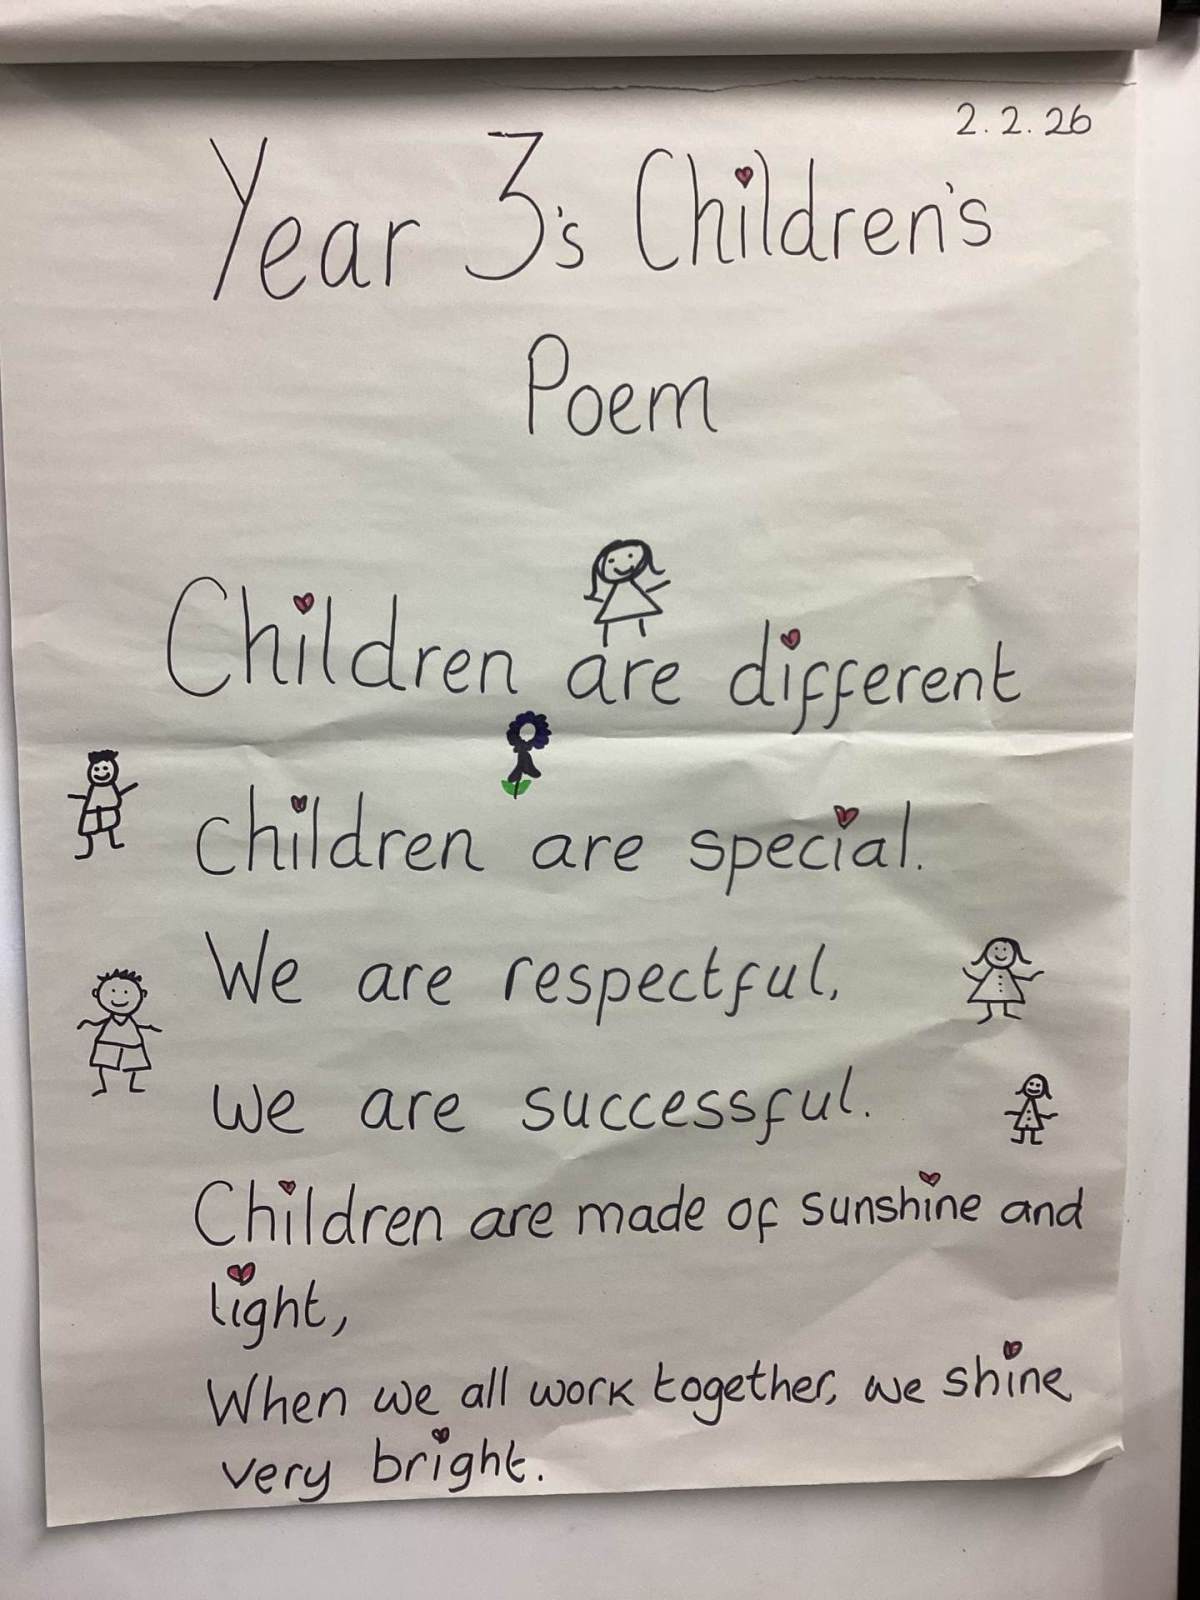 2.2.26
Year 3's Children's
Poem
Children are different
children are special.
We are respectful,
we are successful.
Children are made of sunshine and
light,
When we all work together, we shine
very bright.